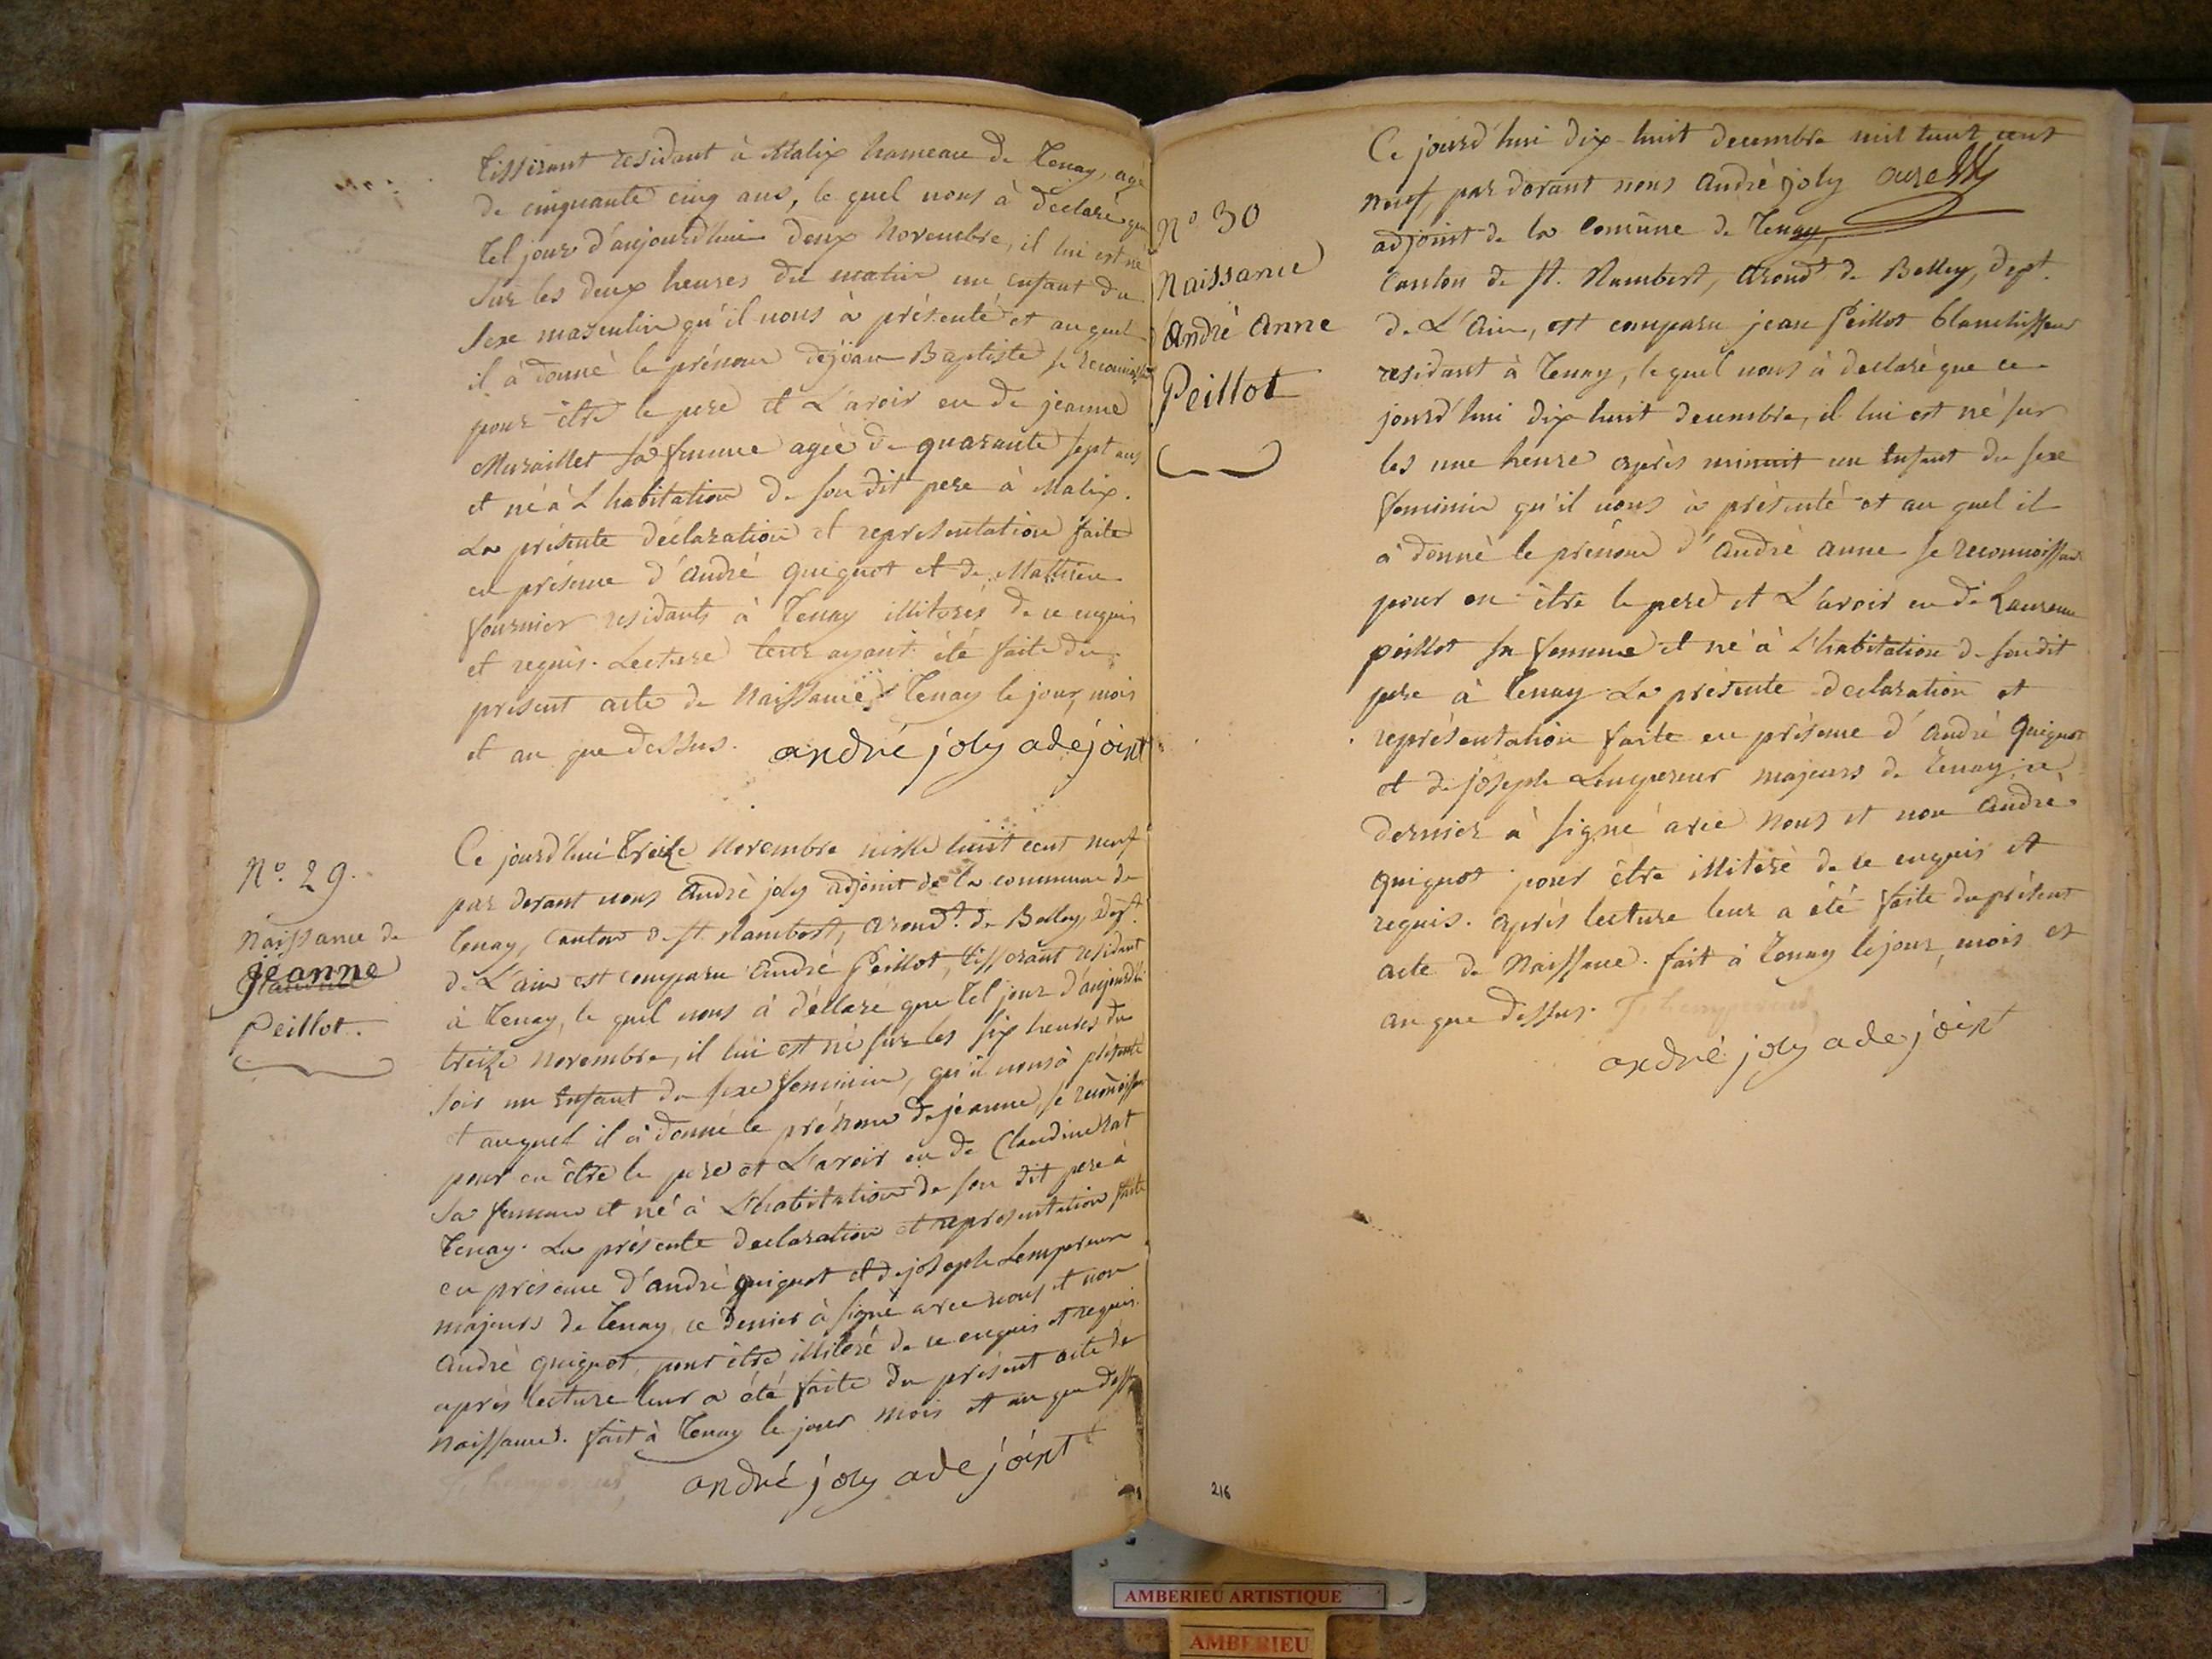 tisserant residant à Malix hameau de Tenay, agé
de cinquante cinq ans, le quel nous à declaré que
tel jour d'aujourd'hui deux Novembre, il lui est né
sur les deux heures du matin un enfant du
sexe masculin qu'il nous à présenté et au quel
il à donné le prénom de jean Baptiste se reconnoissant
pour être le pere et L'avoir eu de jeanne
Muraillet sa femme agée de quarante sept ans
et né à L'habitation de son dit pere à Malix.
La présente déclaration et representation faite
en présence d'André quignot et de Mathieu
fournier residants à Tenay illiterés de ce enquis
et requis. Lecture leur ayant été faite du
present acte de Naissance à Tenay le jour, mois
et an que dessus. andré joly adejoint
N° 29.
Naissance de
jeanne
Claudine
Peillot.
Ce jourd'hui treize Novembre mille huit cent neuf
par devant nous André joly adjoint de la commune de
Tenay, canton de St. Rambert, arond.t de Belley, dept.
de L'ain est comparu André Peillot, tisserant residant
à Tenay, le quel nous à déclaré que tel jour d'aujourd'hui
treize novembre, il lui est né sur les six heures du
soir un Enfant du sexe feminin, qu'il nous à présenté
et au quel il à donné le prénom de jeanne, se reconnoissant
pour en être le pere et L'avoir eu de Claudine rat
sa femme et né à L'habitation de son dit pere à
Tenay. La présente declaration et representation faite
en présence d'andré quignot et de joseph Lempereur
majeurs de Tenay, ce dernier à signé avec nous et non
André quignot, pour être illiteré de ce enquis et requis.
après lecture leur a été faite du présent acte de
Naissance. fait à Tenay le jour mois et an que dessus
J. Lempereur andré joly adejoint
N° 30
Naissance
d'André Anne
Peillot
Ce jourd'hui dix-huit decembre mil huit cent
neuf, par devant nous André joly
adjoint de la Comune de Tenay,
Canton de St. Rambert, Arond.t de Belley, dept.
de L'Ain, est comparu jean Peillot blanchisseur
residant à Tenay, le quel nous à declaré que ce
jourd'hui dix huit decembre, il lui est né sur
les une heure après minuit un Enfant du sexe
feminin qu'il nous à présenté et au quel il
à donné le prénom d'André anne se reconnoissant
pour en être le pere et L'avoir eu de Laurence
peillot sa femme et né à L'habitation de son dit
pere à Tenay. La présente declaration et
représentation faite en présence d'André quignot
et de joseph Lempereur majeurs de Tenay, ce
dernier à signé avec nous et non André
quignot pour être illiteré de ce enquis et
requis. après lecture leur a été faite du présent
acte de Naissance. fait à Tenay le jour, mois et
an que dessus. J. Lempereur
andré joly adejoint
216
AMBERIEU ARTISTIQUE
AMBERIEU